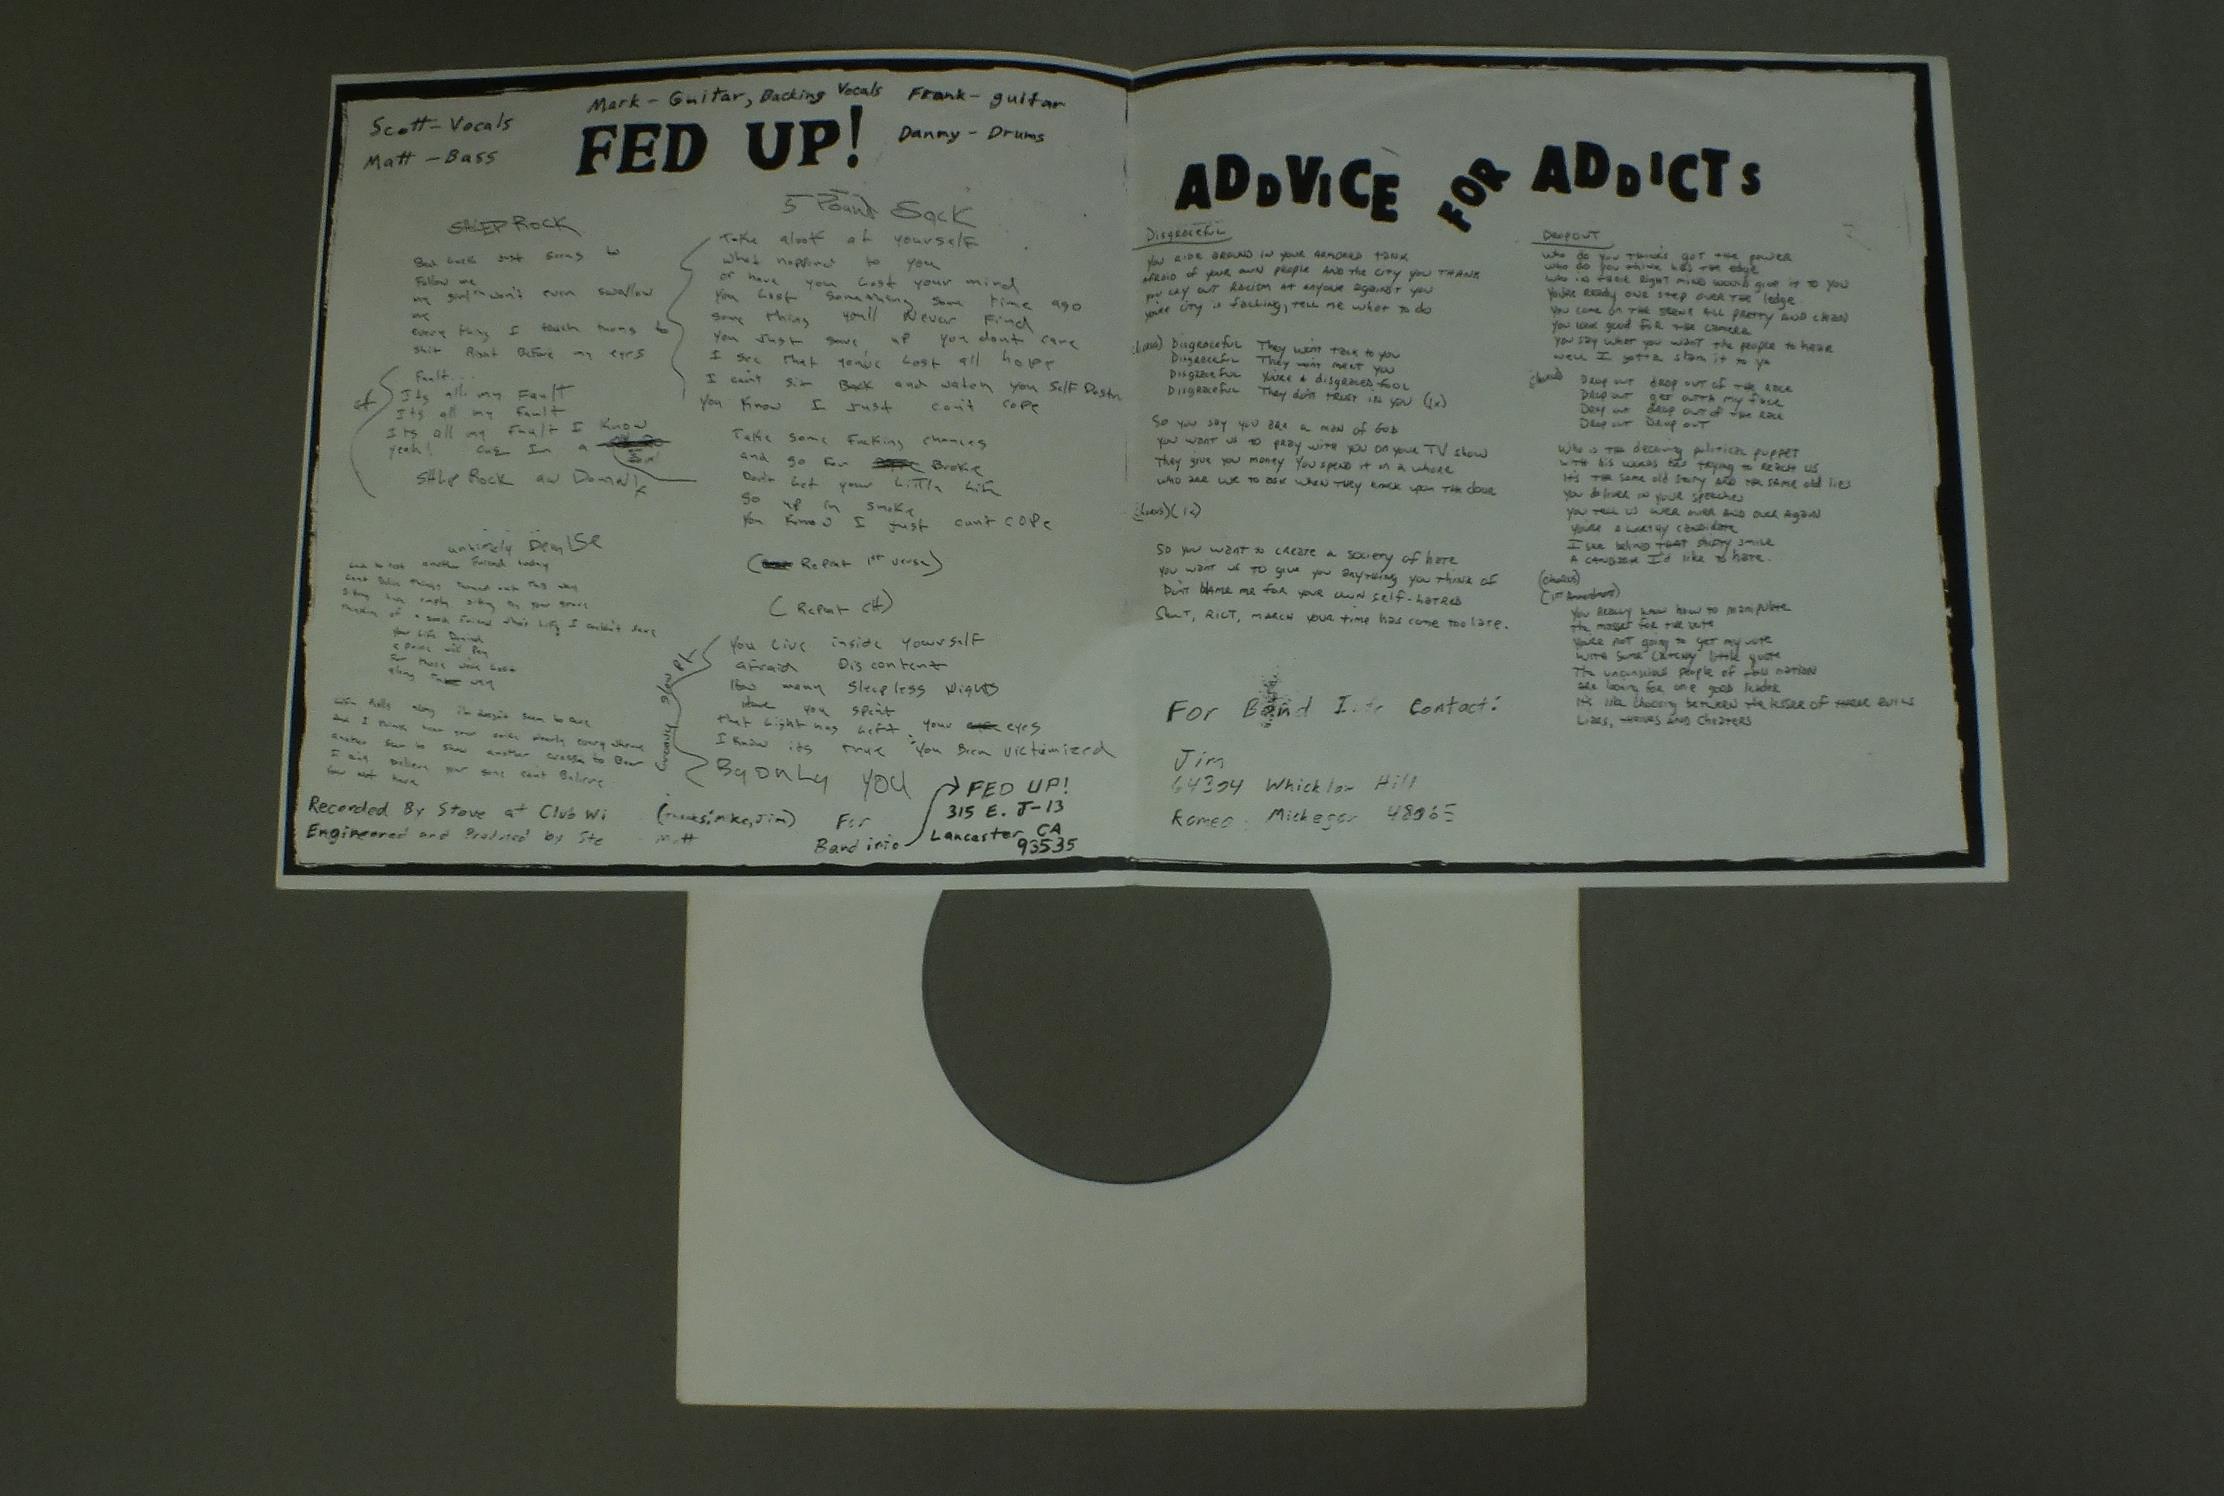 Scott - Vocals
Matt - Bass
Mark - Guitar, Backing Vocals
Frank - guitar
Danny - Drums
FED UP!
SHLEP ROCK
Bad luck just seems to
Follow me
my girl won't even swallow
me
every thing I touch turns to
shit Right Before my eyes
Fault...
Its all my Fault
Its all my Fault
Its all my Fault I know
yeah! cuz Im a
SHLEP ROCK
untimely Demise
another Friend today
things turned out this way
sitting on your grave
thinking of a good friend who's Life I couldn't save
your Life
a price will pay
For those
along the way
Life Rolls along it doesn't seem to care
and I think hear your voice everywhere
another scar to show another cross to Bear
I believe your gone cant Believe
your not here
5 Pound Sack
Take alook at yourself
what happend to you
or have you lost your mind
You lost something some time ago
some thing youll Never Find
You Just gave up you dont care
I see that youve lost all hope
I cant sit Back and watch you Self Destr
you Know I Just cant cope
Take some Fucking chances
and go For Broke
Dont let your Little Life
go up in smoke
You know I just cant cope
(Repeat 1st verse)
(Repeat CH)
You Live inside yourself
afraid Discontent
How many sleepless Nights
Have you spent
that Light has left your eyes
I know its true you Been victimized
By only you
Recorded By Steve at Club Wi
Engineered and Produced by Ste
(thanks, Mike, Jim)
Matt
For
Band info
FED UP!
315 E. J-13
Lancaster, CA
93535
ADDVICE FOR ADDICTS
Disgraceful
You ride around in your armored tank
afraid of your own people and the city you thank
you cry out racism at anyone against you
youre city is falling, tell me what to do
(chorus) Disgraceful They won't talk to you
Disgraceful They won't meet you
Disgraceful You're a disgraced fool
Disgraceful They don't trust in you (1x)
So you say you are a man of God
you want us to pray with you on your TV show
They give you money You spend it on a whore
who are we to ask when they knock upon the door
(chorus)(1x)
So you want to create a society of hate
you want us to give you anything you think of
Don't blame me for your own self-hatred
Shout, RIOT, march your time has come too late.
For Band Info Contact:
Jim
64304 Whicklow Hill
Romeo, Michegan
DROPOUT
who do you thinks got the power
who do you think has the edge
who in their right mind would give it to you
You're ready one step over the ledge
you come on the scene all pretty and clean
you look good for the camera
you say what you want the people to hear
well I gotta slam it to ya
(chorus) Drop out drop out of the race
Drop out get outta my face
Drop out drop out of the race
Drop out Drop out
Who is the deceiving political puppet
with his words hes trying to reach us
it's the same old story and the same old lies
you deliver in your speeches
you tell us over and over again
you're a worthy candidate
I see behind that shitty smile
a candidate I'd like to hate.
(chorus)
You really know how to manipulate
the masses for the vote
you're not going to get my vote
with some catchy little quote
The unconscious people of this nation
are looking for one good leader
it's like choosing between the lesser of evils
Liars, thieves and cheaters